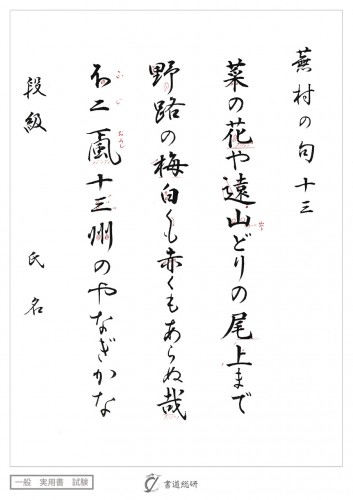 蕪村の句 十三
菜の花や遠山どりの尾上まで
野路の梅白くも赤くもあらぬ哉
ふじ おろし
不二颪十三州のやなぎかな
段級 氏名
一般 実用書 試験
書道総研